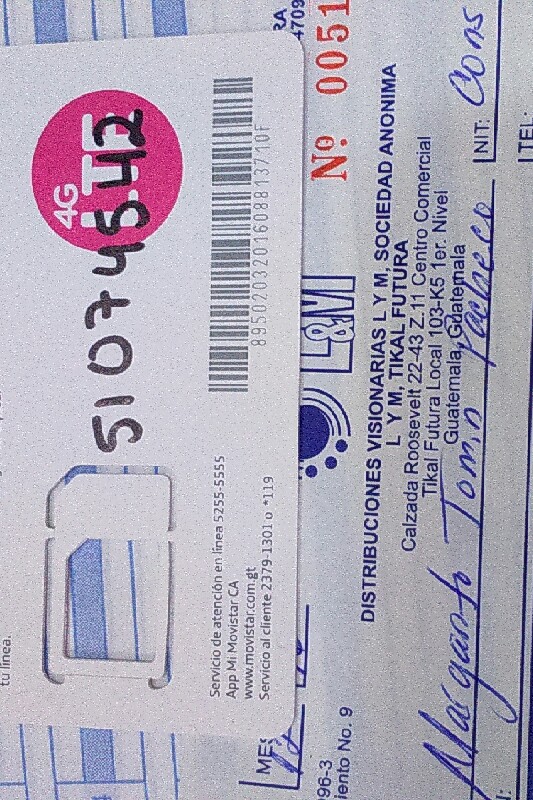 tu línea.
4G
LTE
51074542
8950203201608813710F
Servicio de atención en línea 5255-5555
App Mi Movistar CA
www.movistar.com.gt
Servicio al cliente 2379-1301 o *119
4709
Nº. 0051
L&M
DISTRIBUCIONES VISIONARIAS L Y M, SOCIEDAD ANONIMA
L Y M, TIKAL FUTURA
Calzada Roosevelt 22-43 Z.11 Centro Comercial
Tikal Futura Local 103-K5 1er. Nivel
Guatemala, Guatemala
MES
96-3
iento No. 9
Margarito Tomin Pacheco
NIT: Cons
TEL.